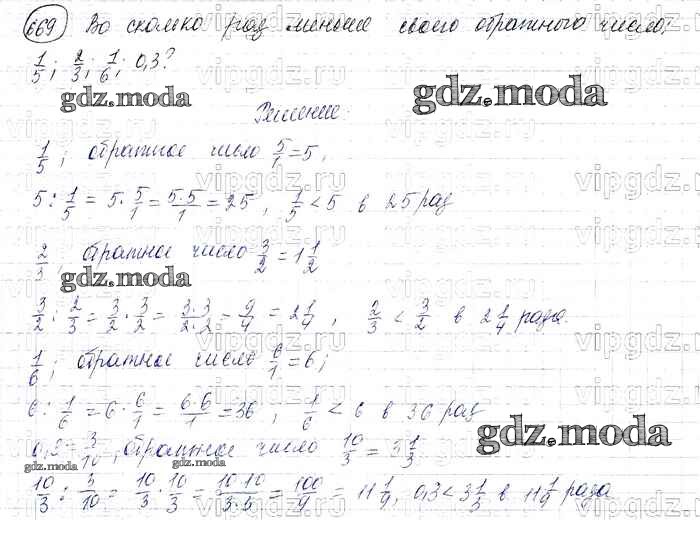 669 Во сколько раз меньше своего обратного число:
1/5; 2/3; 1/6; 0,3?
gdz.moda gdz.moda
Решение.
1/5; обратное число 5/1 = 5,
5 : 1/5 = 5 · 5/1 = 5·5/1 = 25, 1/5 < 5 в 25 раз
2/3, обратное число 3/2 = 1 1/2
gdz.moda
3/2 : 2/3 = 3/2 · 3/2 = 3·3/2·2 = 9/4 = 2 1/4, 2/3 < 3/2 в 2 1/4 раза.
1/6; обратное число 6/1 = 6;
6 : 1/6 = 6 · 6/1 = 6·6/1 = 36, 1/6 < 6 в 36 раз
gdz.moda
0,3 = 3/10, обратное число 10/3 = 3 1/3
gdz.moda gdz.moda
10/3 : 3/10 = 10/3 · 10/3 = 10·10/3·3 = 100/9 = 11 1/9, 0,3 < 3 1/3 в 11 1/9 раза